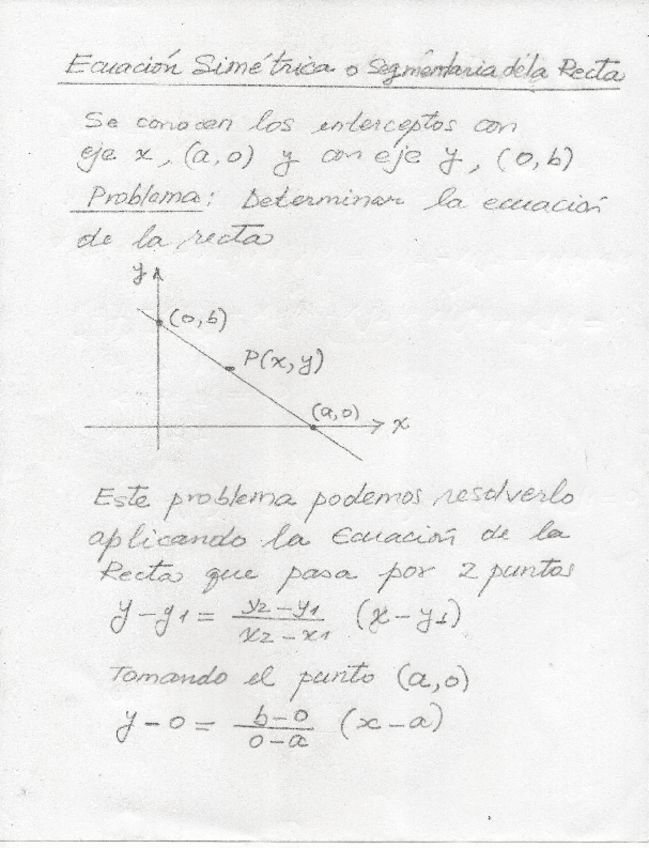 Ecuación Simétrica o Segmentaria de la Recta
Se conocen los interceptos con
eje x, (a,0) y con eje y, (0,b)
Problema: Determinar la ecuación
de la recta
y
(0,b)
P(x,y)
(a,0)
x
Este problema podemos resolverlo
aplicando la Ecuación de la
Recta que pasa por 2 puntos
y-y1 = y2-y1 / x2-x1 (x-y1)
Tomando el punto (a,0)
y-0 = b-0 / 0-a (x-a)